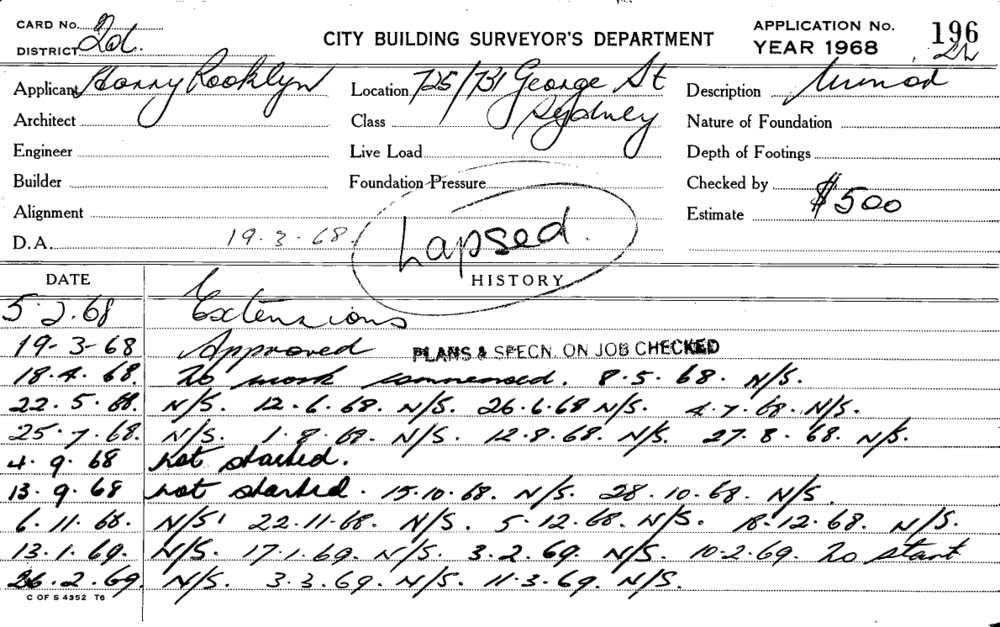 CARD No.
DISTRICT 2d.
CITY BUILDING SURVEYOR'S DEPARTMENT
APPLICATION No. 196
YEAR 1968
Applicant Harry Rooklyn
Location 725/731 George St
Sydney
Description Minor
Architect
Class
Nature of Foundation
Engineer
Live Load
Depth of Footings
Builder
Foundation Pressure
Checked by
Alignment
Estimate $500
D.A. 19.3.68.
Lapsed.
DATE HISTORY
5.2.68 Extensions
19-3-68 Approved PLANS & SPECN. ON JOB CHECKED
18.4.68. No work commenced. 8.5.68. N/S.
22.5.68. N/S. 12.6.68. N/S. 26.6.68 N/S. 4.7.68. N/S.
25.7.68. N/S. 1.8.68. N/S. 12.8.68. N/S. 27.8.68. N/S.
4.9.68 Not started.
13.9.68 Not started. 15.10.68. N/S. 28.10.68. N/S.
6.11.68. N/S. 22.11.68. N/S. 5.12.68. N/S. 18.12.68. N/S.
13.1.69. N/S. 17.1.69. N/S. 3.2.69. N/S. 10.2.69. No start
26.2.69. N/S. 3.3.69. N/S. 11.3.69. N/S.
C OF S 4352 T6